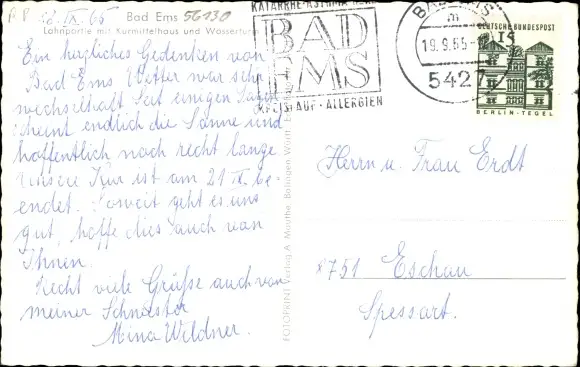 18. IX. 65 Bad Ems 56130
Lahnpartie mit Kurmittelhaus und Wasserturm
Ein herzliches Gedenken von
Bad Ems Wetter war sehr
wechselhaft seit einigen Tagen
scheint endlich die Sonne und
hoffentlich noch recht lange.
Unsere Kur ist am 21 IX. be-
endet. Soweit geht es uns
gut, hoffe dies auch von
Ihnen.
Recht viele Grüße auch von
meiner Schwester
Mina Wildner.
FOTOPRINT Verlag A.
KATARRHE·ASTHMA
BAD
EMS
KREISLAUF·ALLERGIEN
BAD EMS
19.9.65
5427
DEUTSCHE BUNDESPOST
15
BERLIN-TEGEL
Herrn u. Frau Erdt
8751 Eschau
Spessart.